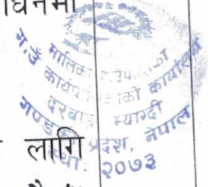 धिनमा
मालिका गाउँपालिका
गाउँ कार्यपालिकाको कार्यालय
दरबाङ म्याग्दी
गण्डकी प्रदेश, नेपाल
लागि
२०७३